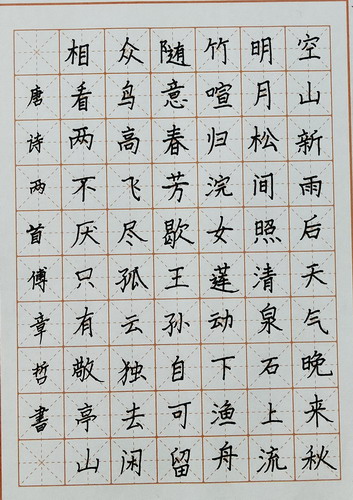 空山新雨后天气晚来秋
明月松间照清泉石上流
竹喧归浣女莲动下渔舟
随意春芳歇王孙自可留
众鸟高飞尽孤云独去闲
相看两不厌只有敬亭山
唐诗两首傅章哲書